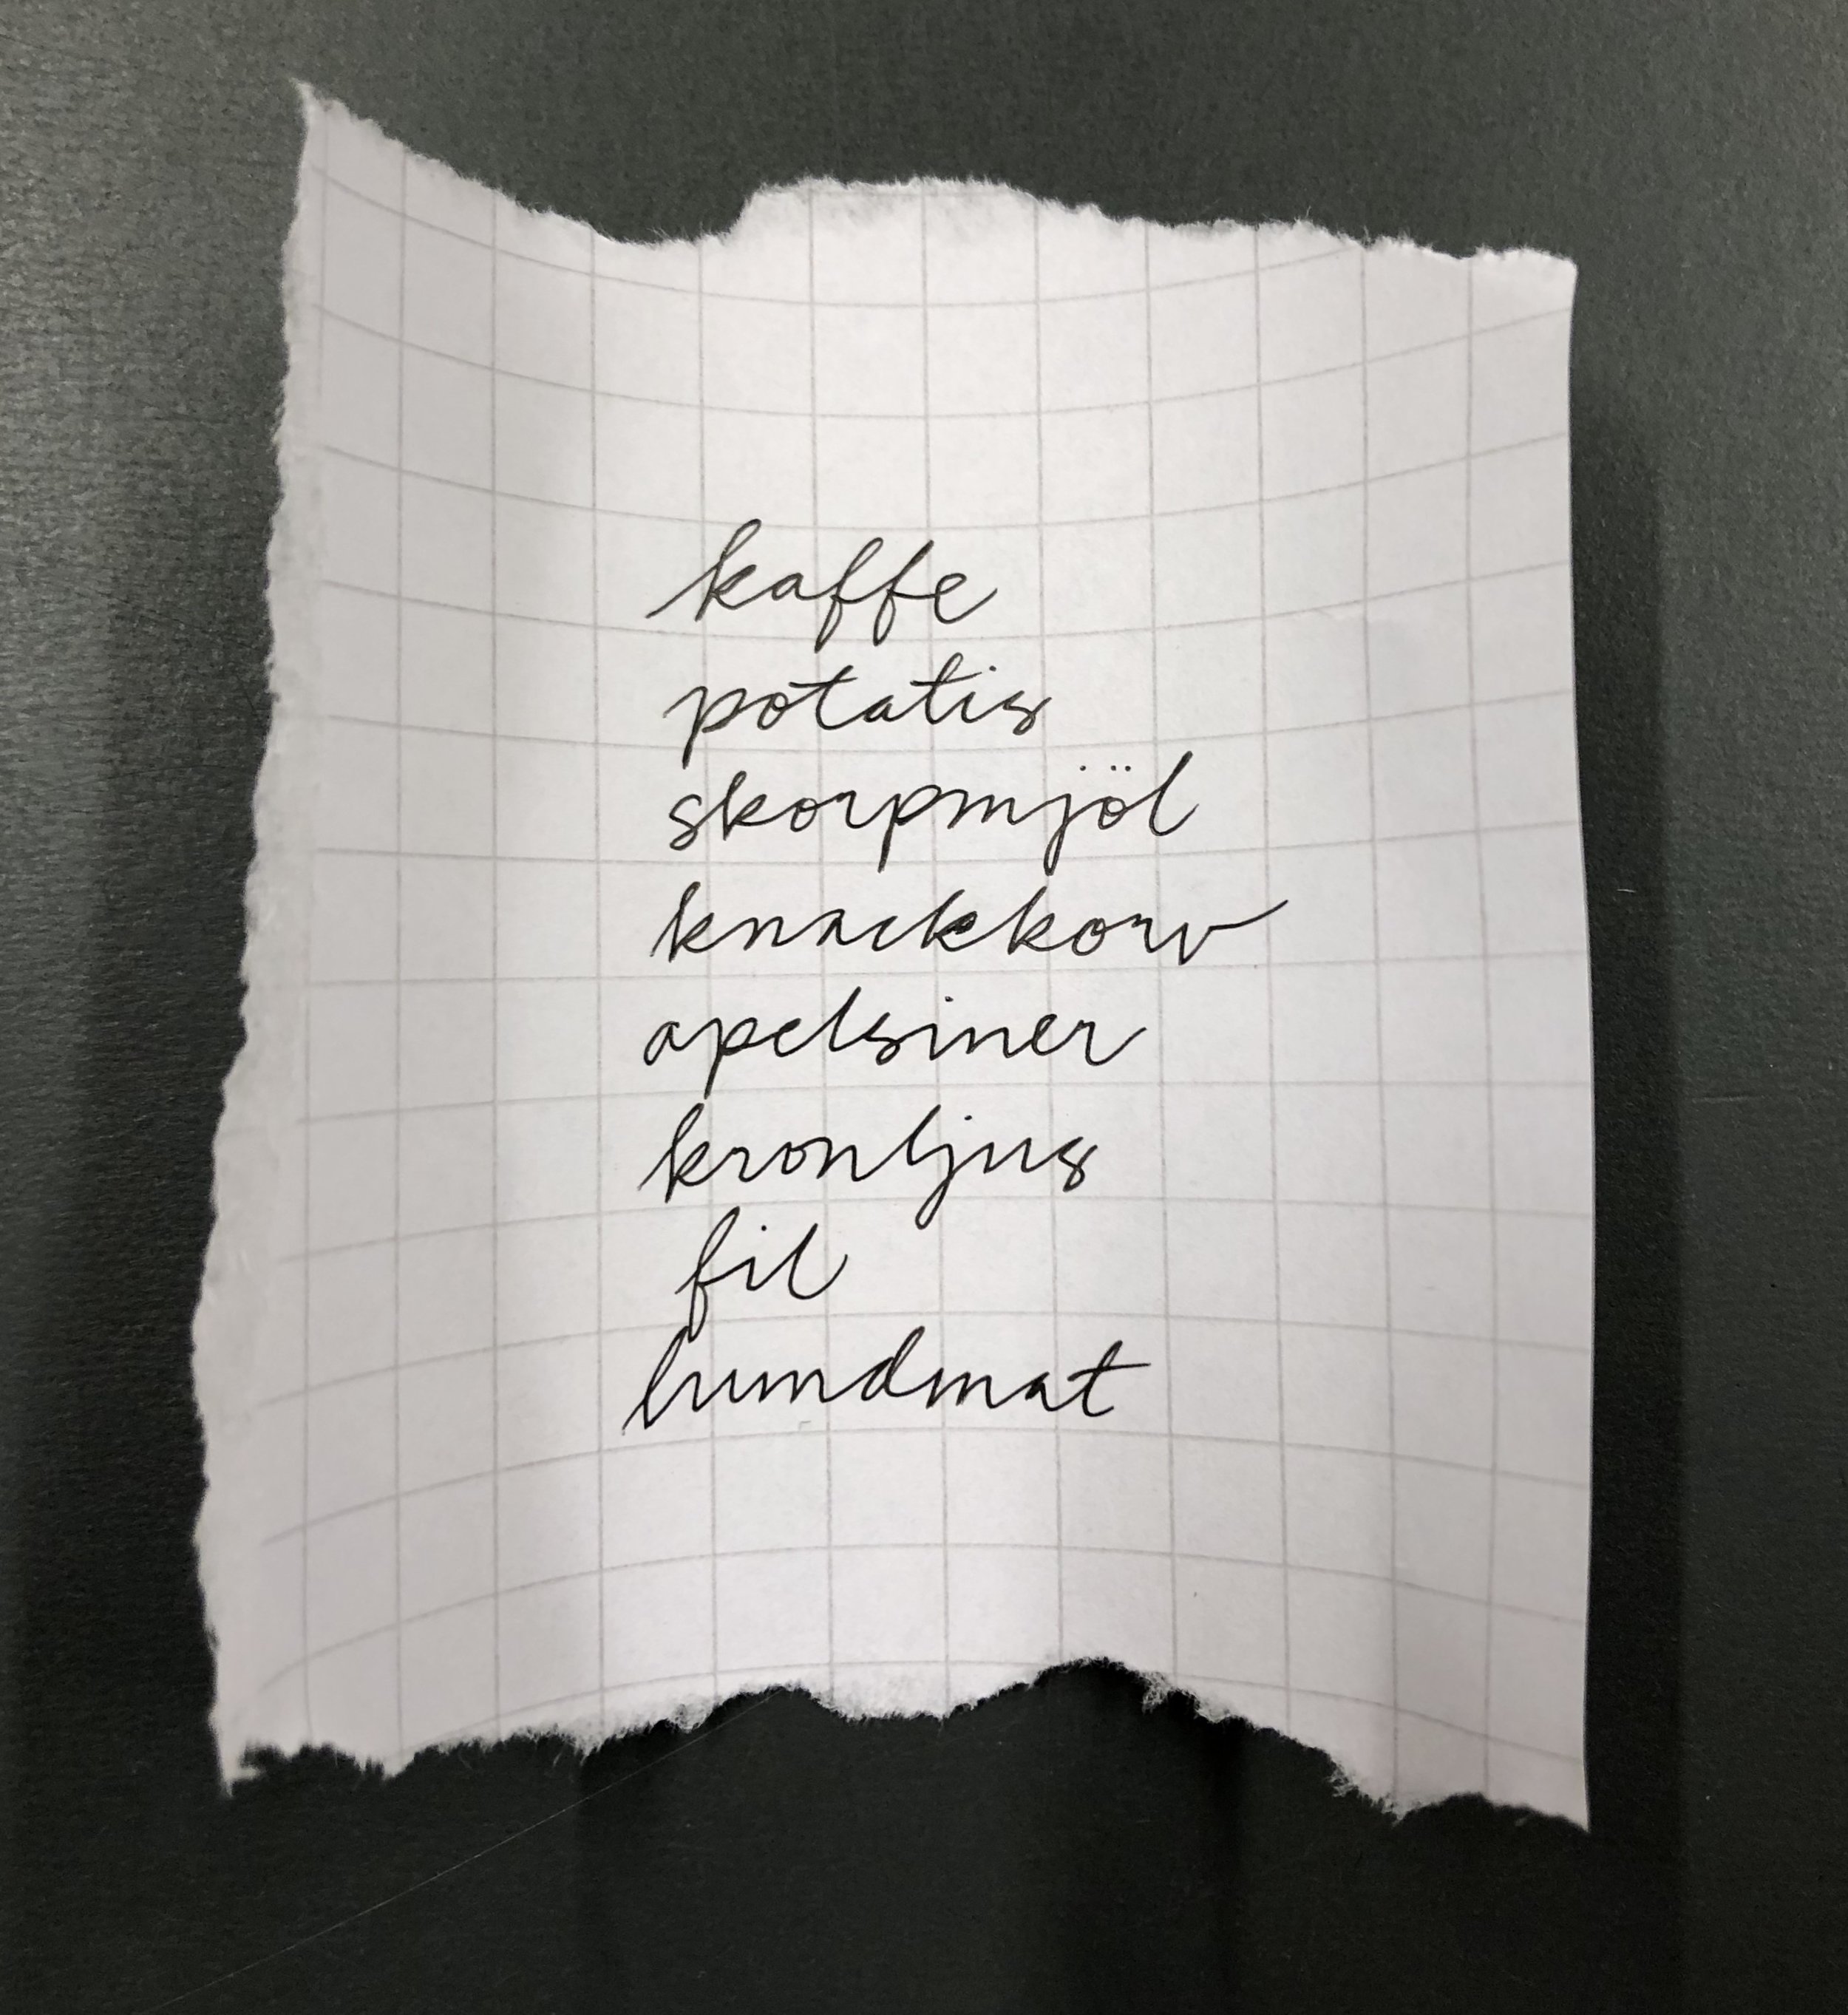 kaffe
potatis
skorpmjöl
knackkorv
apelsiner
kronljus
fil
hundmat